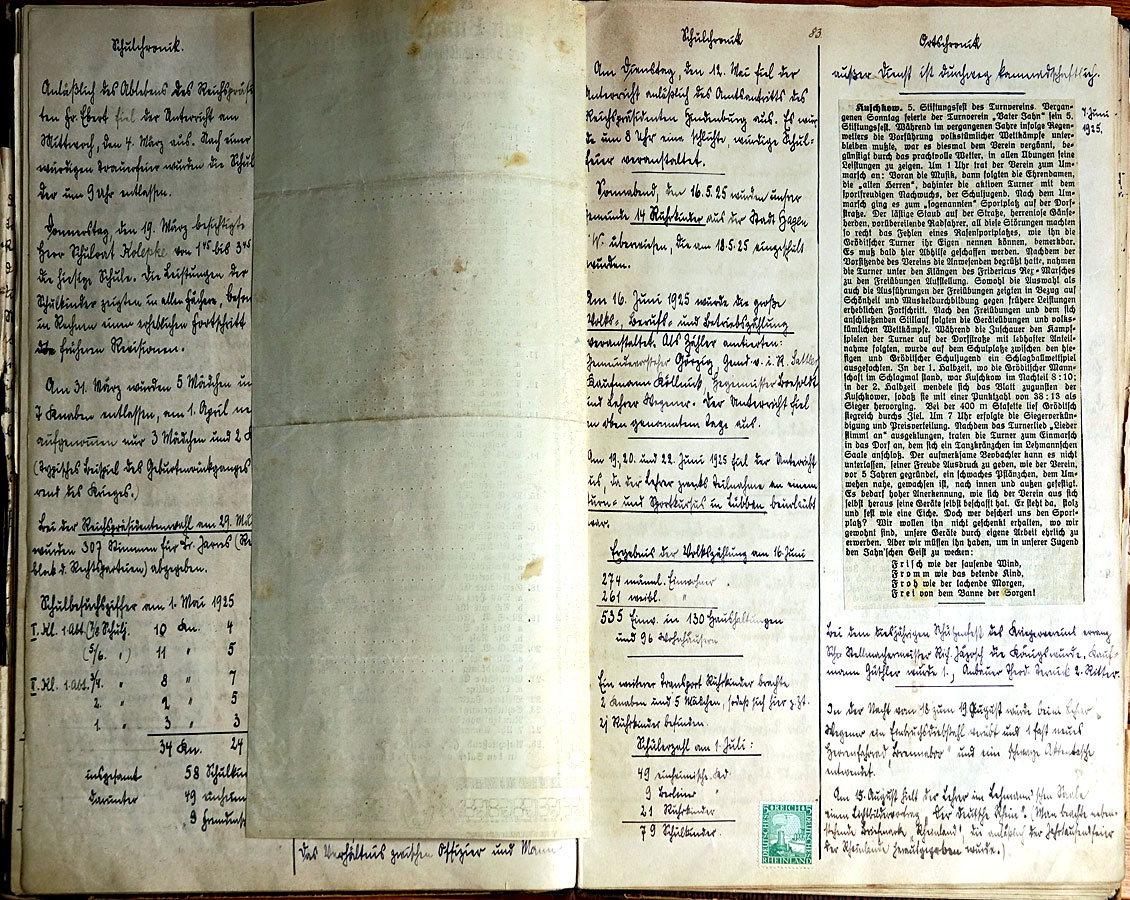 Schulchronik.
Anläßlich des Ablebens des Reichspräsi
ten Fr. Ebert fiel der Unterricht am
Mittwoch, den 4. März aus. Nach einer
würdigen Trauerfeier wurden die Schül
der um 9 Uhr entlassen.
Donnerstag, den 19. März besichtigte
Herr Schulrat Kolepke von 1⁴⁵ bis 3⁴⁵
die hiesige Schule. Die Leistungen der
Schulkinder zeigten in allen Fächern, beson
in Rechnen einen erheblichen Fortschritt
früheren Revisionen.
Am 31. März wurden 5 Mädchen un
7 Knaben entlassen, am 1. April ne
aufgenommen nur 3 Mädchen und 2
(Typisches Beispiel des Geburtenrückganges
rend des Krieges.)
Bei der Reichspräsidentenwahl am 29. Mä
wurden 307 Stimmen für Dr. Jarres (Re
block d. Rechtsparteien) abgegeben.
Schulbesuchsziffer am 1. Mai 1925
I. Kl. 1. Abt. (7/8 Schulj. 10 Kn. 4
(5/6. " ) 11 " 5
II. Kl. 1. Abt. 3/4. " 8 " 7
2. " 2 " 5
1. " 3 " 3
34 Kn. 24
insgesamt 58 Schulkin
darunter 49 einheim
9 Fremde
Das Verhältnis zwischen Offizier und Mann-
Schulchronik
83.
Am Dienstag, den 12. Mai fiel der
Unterricht anläßlich des Amtsantritts des
Reichspräsidenten Hindenburg aus. Es wur
de um 8 Uhr eine schlichte würdige Schul-
feier veranstaltet.
Sonnabend, den 16.5.25 wurden unser
Gemeinde 14 Ruhrkinder aus der Stadt Hagen
i/W. überwiesen, die am 18.5.25 eingeschult
wurden.
Am 16. Juni 1925 wurde die große
Volks-, Berufs- und Betriebszählung
veranstaltet. Als Zähler amtierten:
Gemeindevorsteher Görzig, Gemd. v. i. R.
Kaufmann Köllnick, Hegemeister
und Lehrer Wegener. Der Unterricht fiel
an oben genanntem Tage aus.
Am 19., 20. und 22. Juni 1925 fiel der Unterricht
aus, da der Lehrer zwecks Teilnahme an einem
Turn- und Sportkursus in Lübben beurlaubt
war.
Ergebnis der Volkszählung am 16. Juni
274 männl. Einwohner
261 weibl. "
535 Einw. in 130 Haushaltungen
und 96 Wohnhäusern
Ein weiterer Transport Ruhrkinder brachte
2 Knaben und 5 Mädchen, sodaß sich hier z. Zt.
21 Ruhrkinder befinden.
Schülerzahl am 1. Juli:
49 einheimische Kd
9 Berliner "
21 Ruhrkinder
79 Schulkinder.
DEUTSCHES REICH
RHEINLAND
Ortschronik
außer Dienst ist durchweg kameradschaftlich.
7. Juni
1925.
Kuschkow. 5. Stiftungsfest des Turnvereins. Vergan-
genen Sonntag feierte der Turnverein „Vater Jahn“ sein 5.
Stiftungsfest. Während im vergangenen Jahre infolge Regen-
wetters die Vorführung volkstümlicher Wettkämpfe unter-
bleiben mußte, war es diesmal dem Verein vergönnt, be-
günstigt durch das prachtvolle Wetter, in allen Übungen seine
Leistungen zu zeigen. Um 1 Uhr trat der Verein zum Um-
marsch an: Voran die Musik, dann folgten die Ehrendamen,
die „alten Herren“, dahinter die aktiven Turner mit dem
sportfreudigen Nachwuchs, der Schuljugend. Nach dem Um-
marsch ging es zum „sogenannten“ Sportplatz auf der Dorf-
straße. Der lästige Staub auf der Straße, herrenlose Gänse-
herden, vorübereilende Radfahrer, all diese Störungen machten
so recht das Fehlen eines Rasensportplatzes, wie ihn die
Gröditscher Turner ihr Eigen nennen können, bemerkbar.
Es muß bald hier Abhilfe geschaffen werden. Nachdem der
Vorsitzende des Vereins die Anwesenden begrüßt hatte, nahmen
die Turner unter den Klängen des Fridericus Rex-Marsches
zu den Freiübungen Aufstellung. Sowohl die Auswahl als
auch die Ausführungen der Freiübungen zeigten in Bezug auf
Schönheit und Muskeldurchbildung gegen frühere Leistungen
erheblichen Fortschritt. Nach den Freiübungen und dem sich
anschließenden Stillauf folgten die Geräteübungen und volks-
tümlichen Wettkämpfe. Während die Zuschauer den Kampf-
spielen der Turner auf der Dorfstraße mit lebhafter Anteil-
nahme folgten, wurde auf dem Schulplatze zwischen den hie-
sigen und Gröditscher Schuljugend ein Schlagballwettspiel
ausgefochten. In der 1. Halbzeit, wo die Gröditscher Mann-
schaft im Schlagmal stand, war Kuschkow im Nachteil 8:10;
in der 2. Halbzeit wendete sich das Blatt zugunsten der
Kuschkower, sodaß sie mit einer Punktzahl von 38:13 als
Sieger hervorging. Bei der 400 m Stafette lief Gröditsch
siegreich durchs Ziel. Um 7 Uhr erfolgte die Siegerverkün-
digung und Preisverteilung. Nachdem das Turnerlied „Lieder
stimmt an“ ausgeklungen, traten die Turner zum Einmarsch
in das Dorf an, dem sich ein Tanzkränzchen im Lehmannschen
Saale anschloß. Der aufmerksame Beobachter kann es nicht
unterlassen, seiner Freude Ausdruck zu geben, wie der Verein,
vor 5 Jahren gegründet, ein schwaches Pflänzchen, dem Um-
wehen nahe, gewachsen ist, nach innen und außen gefestigt.
Es bedarf hoher Anerkennung, wie sich der Verein aus sich
selbst heraus seine Geräte selbst beschafft hat. Er steht da, stolz
und fest wie eine Eiche. Doch wer beschert uns den Sport-
platz? Wir wollen ihn nicht geschenkt erhalten, wo wir
gewohnt sind, unsere Geräte durch eigene Arbeit ehrlich zu
erwerben. Aber wir müssen ihn haben, um in unserer Jugend
den Jahn'schen Geist zu wecken:
Frisch wie der sausende Wind,
Fromm wie das betende Kind,
Froh wie der lachende Morgen,
Frei von dem Banne der Sorgen!
Bei dem diesjährigen Schützenfest des Kriegervereins errang
Schr. Stellmachermeister Rich. Jäzosch die Königswürde. Kauf-
mann Güthler wurde 1., Anbauer Theod. 2. Ritter.
In der Nacht vom 18 zum 19 August wurde beim Lehrer
Wegener ein Einbruchsdiebstahl verübt und 1 fast neues
Herrenfahrrad „Brennabor“ und eine schwarze Aktentasche
entwendet.
Am 15. August hielt der Lehrer im Lehmannschen Saale
einen Lichtbildervortrag „Der deutsche Rhein“. (Man beachte neben-
stehende Briefmarke „Rheinland“, die anläßlich der Jahrtausendfeier
der Rheinlande herausgegeben wurde.)